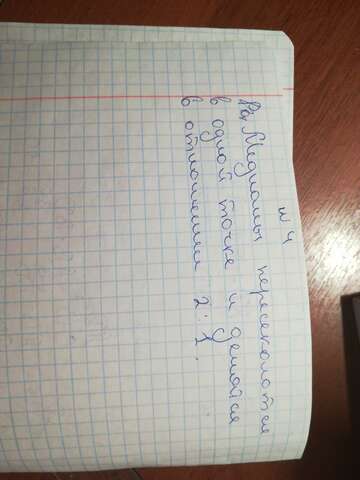 № 4
Медианы пересекаются
в одной точке и делятся
в отношении 2:1.